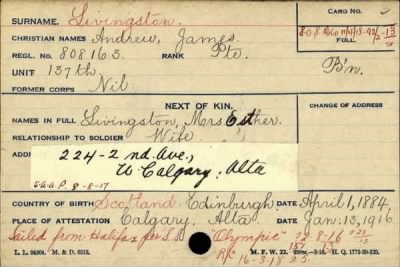 SURNAME, Livingston. CARD NO.
CHRISTIAN NAMES Andrew, James. FULL
REGL. NO. 808163. RANK Pte.
UNIT 137th B'n.
FORMER CORPS Nil
NEXT OF KIN. CHANGE OF ADDRESS
NAMES IN FULL Livingston, Mrs. Esther.
RELATIONSHIP TO SOLDIER Wife
ADD
224-2nd. Ave.,
W. Calgary, Alta
8-8-17
COUNTRY OF BIRTH Scotland Edinburgh DATE April 1, 1884.
PLACE OF ATTESTATION Calgary, Alta DATE Jan. 13, 1916
Sailed from Halifax per S.S. "Olympic" 22-8-16
16-3-18
L. L. 94904. M. & D. 6512. M. F. W. 22. H. Q. 1772-39-220.